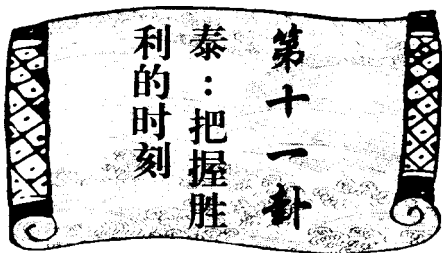 第十一卦
泰：把握胜
利的时刻